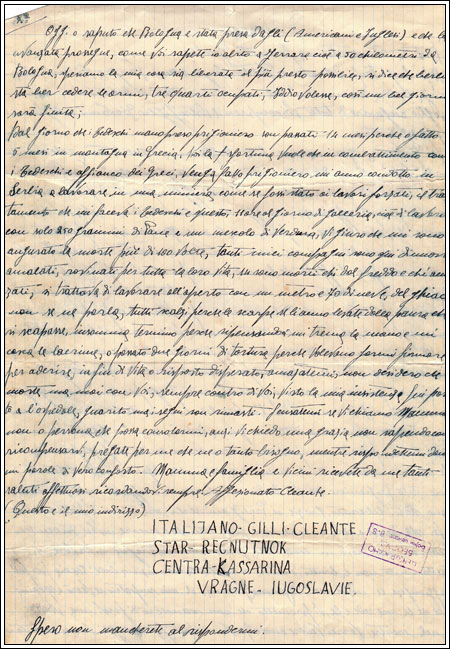 Off. o saputo che Bologna e stata presa dagli (Americani e Inglesi) e che la
avanzata prosegue, come voi sapete io abito a Ferrara cioè a 50 chilometri da
Bologna, speriamo la mia casa sia liberata al più presto possibile, si dice che Berlino
stà per cedere le armi, tre quarti occupati, Iddio volesse, così un bel giorno
sarà finita;
Dal giorno che i tedeschi mi anno preso prigioniero son passati 14 mesi perche o fatto
5 mesi in montagna in Grecia, poi la sfortuna vuole che in combattimento con
i tedeschi e affianco dei Greci, venga fatto prigioniero, mi anno condotto in
Serbia a lavorare in una miniera, come se fossi stato ai lavori forzati, il trat
tamento che mi faceva i tedeschi e questo, 11 ore al giorno di galleria, cioè di lavoro
con solo 250 grammi di Pane e un mescolo di verdura, vi giuro che mi sono
augurato la morte più di 100 volte, tanti miei compagni sono quasi di nuovo
amalati, rovinati per tutta la loro vita, ne sono morti chi dal freddo e chi
zati, si trattava di lavorare all'aperto con un metro e 70 di neve, del ghiaccio
non se ne parla, tutti scalzi perche le scarpe ce li anno levate dalla paura che
si scapasse, insomma termino perche ripensandoci mi trema la mano e mi
cosa le lacrime, o passato due giorni di tortura perche volevano farmi firmare
per aderire, in fin di vita o risposto disperato, amazatemi, non desidero che
morte ma mai con voi, sempre contro di voi, visto la mia insistenza fui por
to a l'ospedale, guarito ma i segni son rimasti. Scusatemi se vi chiamo Mamma
non o persona che possa consolarmi, anzi vi chiedo una grazia non sapendo con
ricompensarvi, pregate per me che ne o tanto bisogno, mentre rispondetemi dan
mi parole di vero conforto. Mamma e famiglia e vicini ricevete da me tanti
saluti affettuosi ricordandovi sempre. Affezionato Cleante.
(Questo e il mio indirizzo)
ITALIJANO-GILLI-CLEANTE
STAR-REGNUTNOK
CENTRA-KASSARINA
VRAGNE-IUGOSLAVIE.
Spero non mancherete al rispondermi.